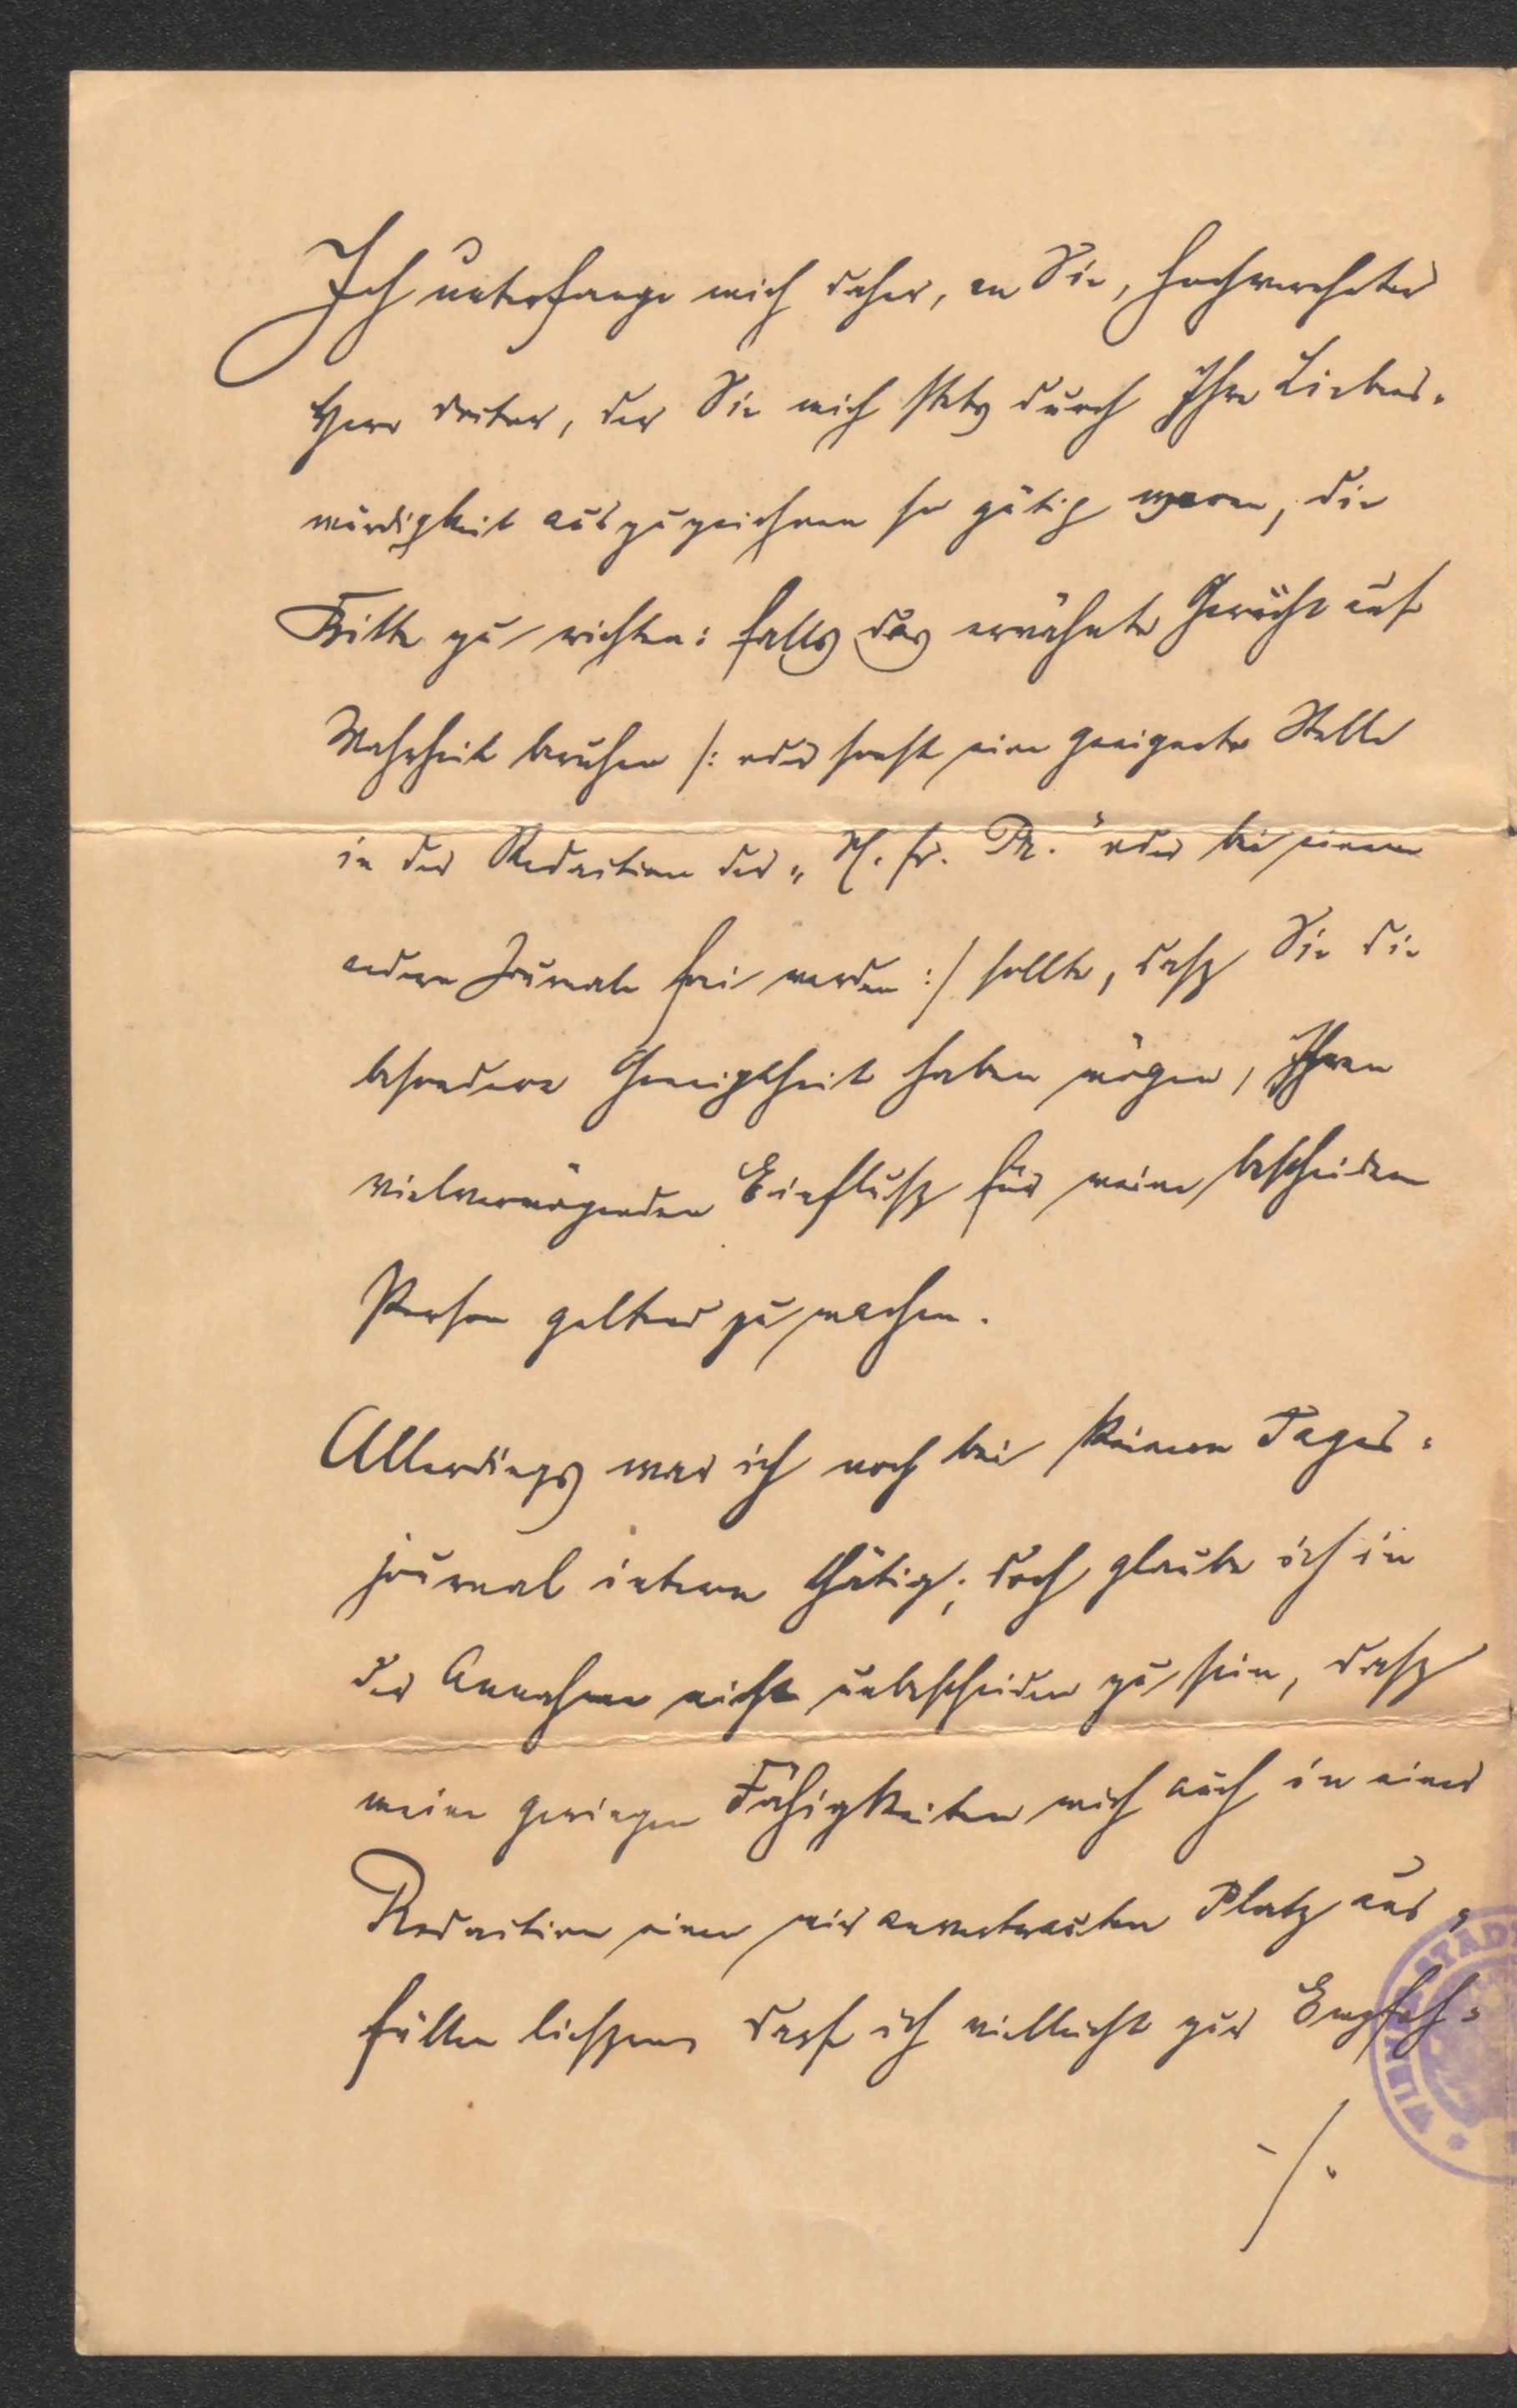 Ich unterfange mich daher, an Sie, hochverehrter
Herr Doctor, der Sie mich stets durch Ihre Liebens-
würdigkeit auszuzeichnen so gütig waren, die
Bitte zu richten: falls das erwähnte Gerücht auf
Wahrheit beruhen /: oder sonst eine geeignete Stelle
in der Redaction der „N. fr. Pr." oder bei einem
andern Journale frei werden :/ sollte, dasz Sie die
besondere Geneigtheit haben mögen, Ihren
vielvermögenden Einflusz für meine bescheidene
Person geltend zu machen.
Allerdings war ich noch bei keinem Tages-
journal intern thätig; doch glaube ich in
der Annahme nicht unbescheiden zu sein, dasz
meine geringen Fähigkeiten mich auch in einer
Redaction einen mir anvertrauten Platz aus-
füllen lieszen. Darf ich vielleicht zur Empfeh-
./.
WIENER STADT